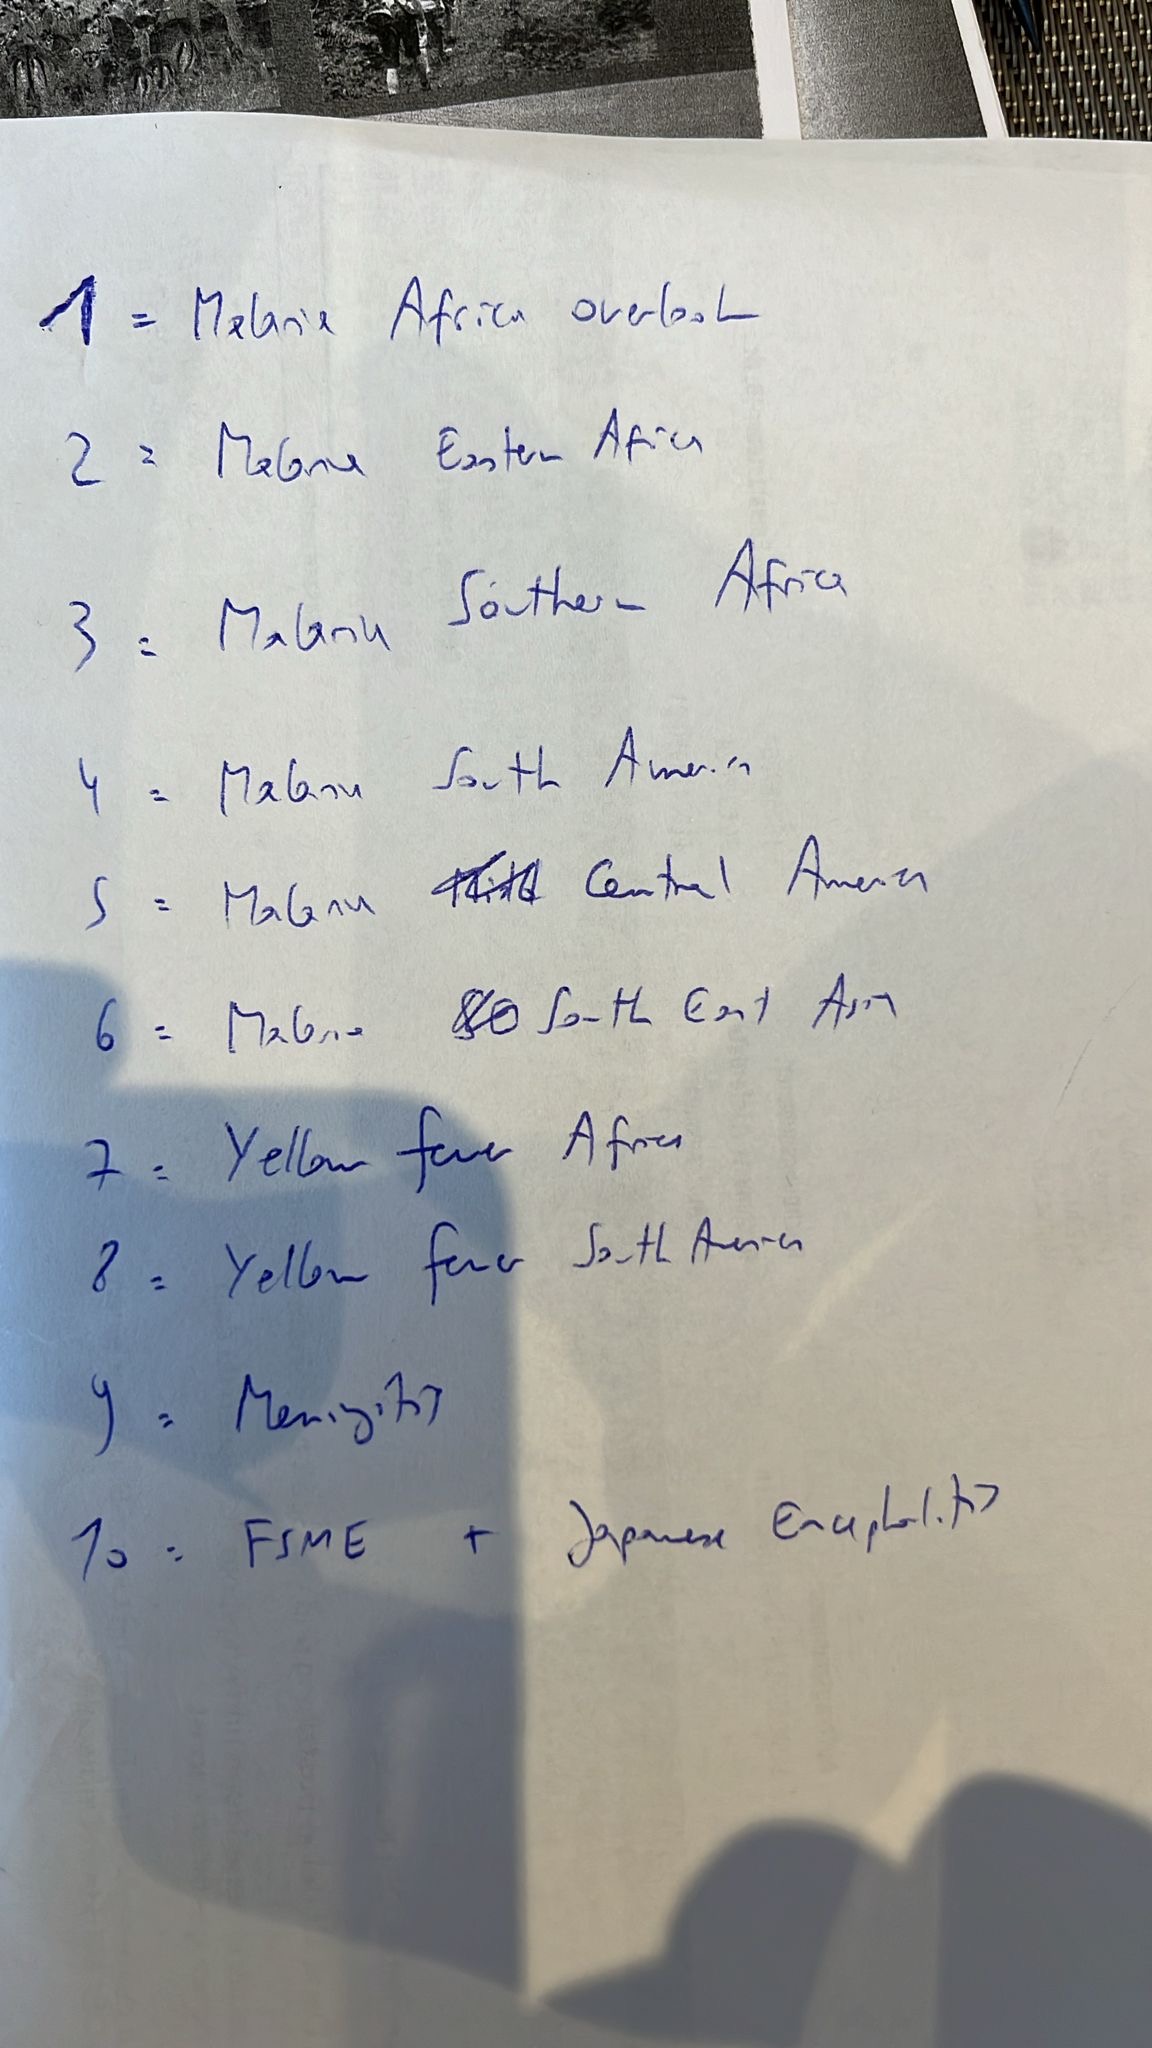 1 = Malaria Africa overlook
2 = Malaria Eastern Africa
3 = Malaria Southern Africa
4 = Malaria South America
5 = Malaria Central America
6 = Malaria South East Asia
7 = Yellow fever Africa
8 = Yellow fever South America
9 = Meningitis
10 = FSME + Japanese Encephalitis